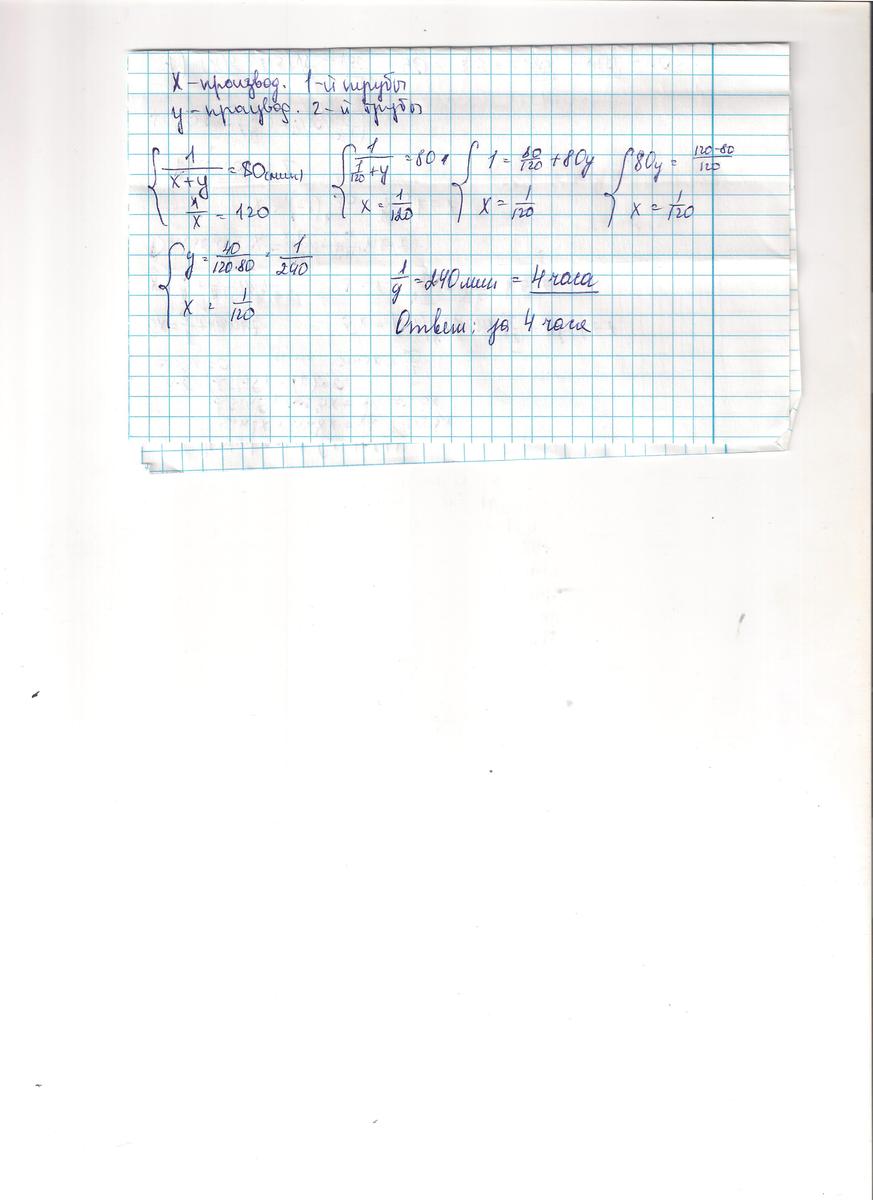 x - производ. 1-й трубы
y - производ. 2-й трубы
{ 1/(x+y) = 80 (мин) { 1/(1/120+y) = 80 { 1 = 80/120 + 80y { 80y = (120-80)/120
1/x = 120 x = 1/120 x = 1/120 x = 1/120
{ y = 40/(120·80) = 1/240
x = 1/120
1/y = 240 мин = 4 часа
Ответ: за 4 часа